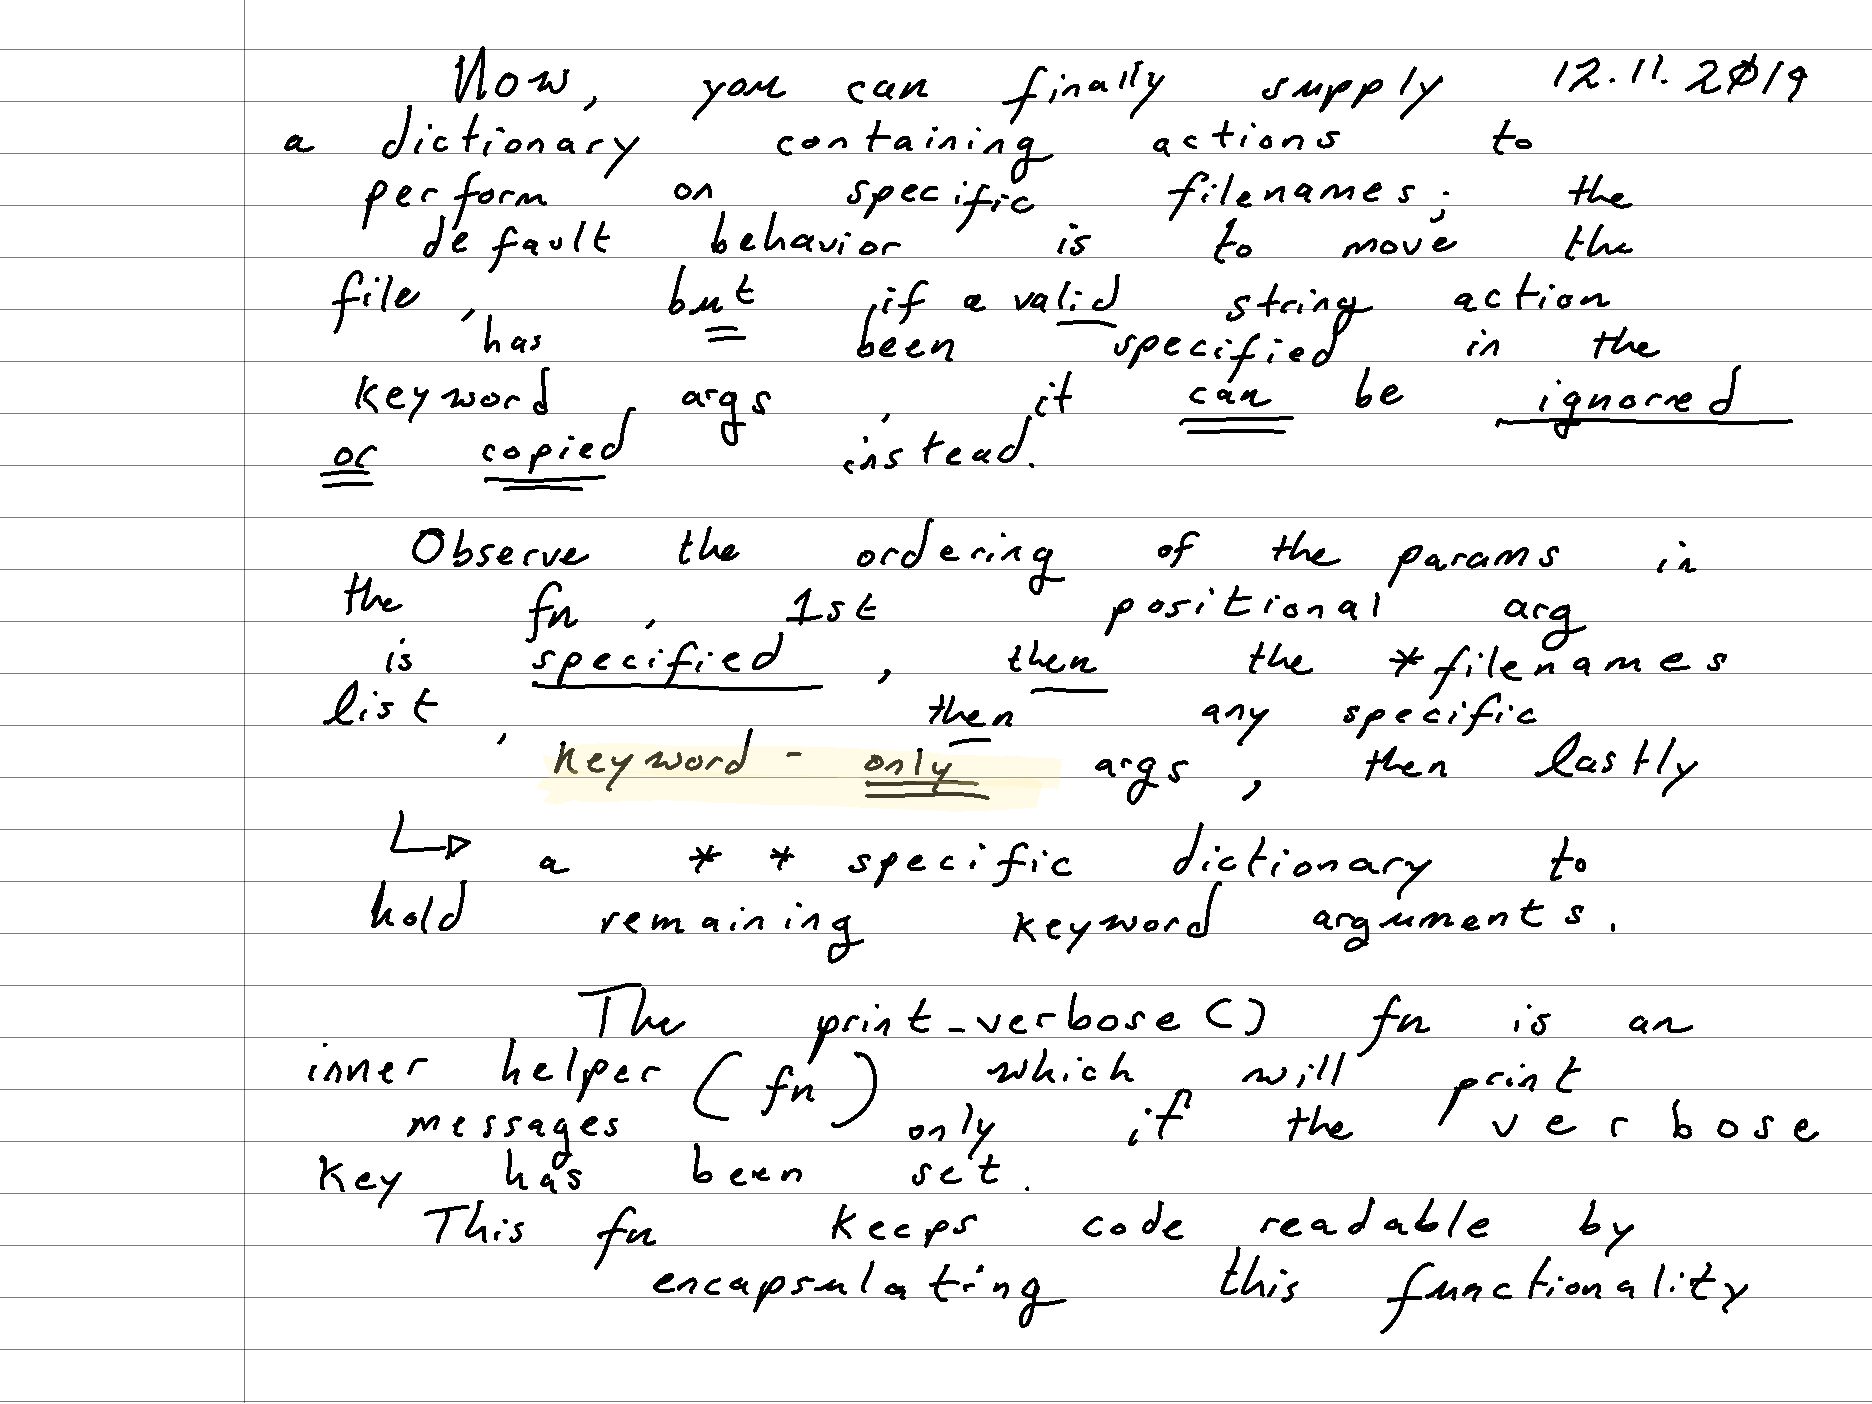 Now, you can finally supply 12.11.2019
a dictionary containing actions to
perform on specific filenames; the
default behavior is to move the
file, but if a valid string action
has been specified in the
keyword args, it can be ignored
or copied instead.
Observe the ordering of the params in
the fn, 1st positional arg
is specified, then the *filenames
list, then any specific
keyword-only args, then lastly
↳ a ** specific dictionary to
hold remaining keyword arguments.
The print_verbose() fn is an
inner helper (fn) which will print
messages only if the verbose
key has been set.
This fn keeps code readable by
encapsulating this functionality